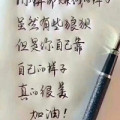 虽然有些狼狈
但是你自己靠
自己的样子
真的很美
加油!